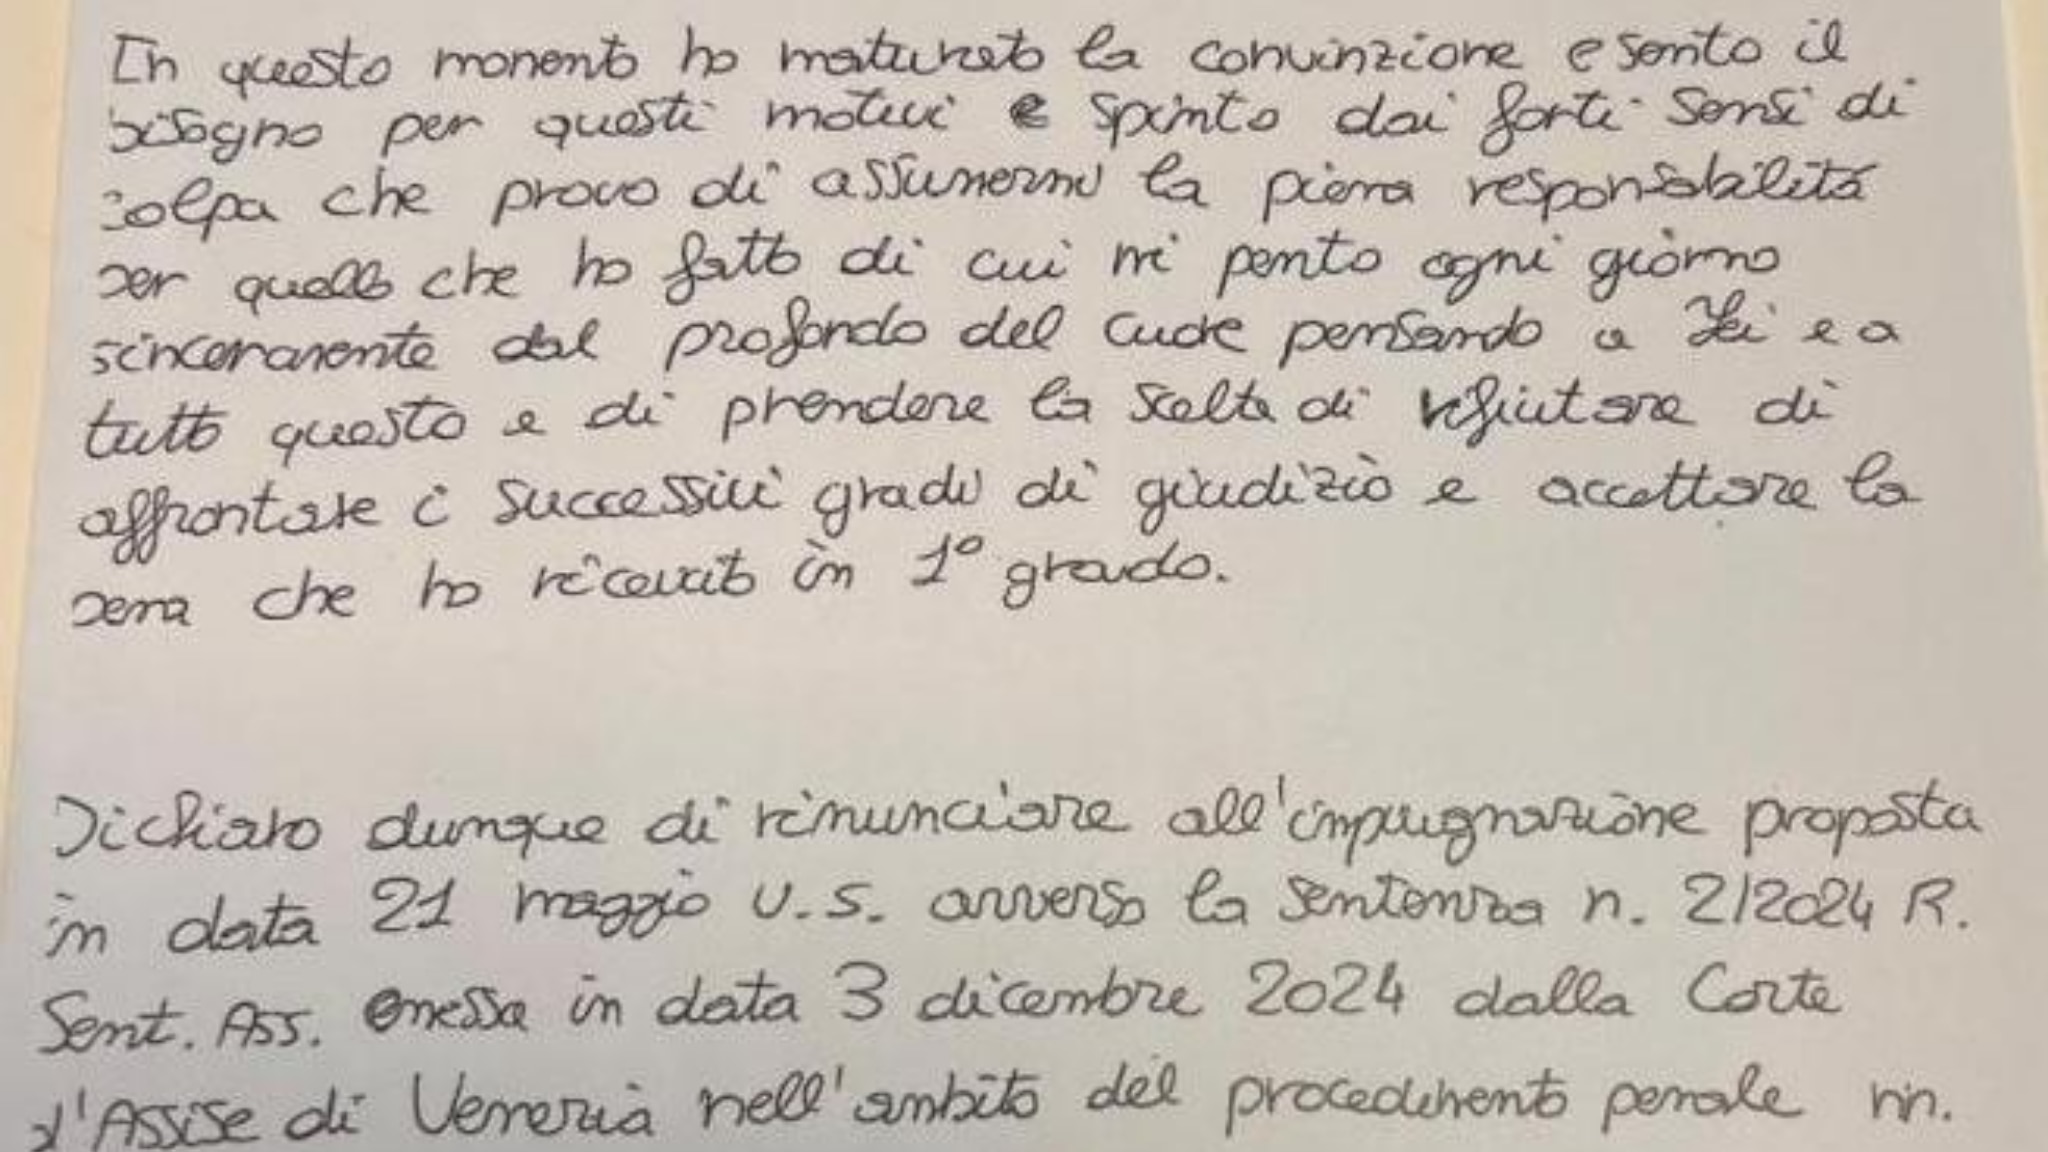 In questo momento ho maturato la convinzione e sento il
bisogno per questi motivi e spinto dai forti sensi di
colpa che provo di assumermi la piena responsabilità
per quello che ho fatto di cui mi pento ogni giorno
sinceramente dal profondo del cuore pensando a Lei e a
tutto questo e di prendere la scelta di rifiutare di
affrontare i successivi gradi di giudizio e accettare la
pena che ho ricevuto in 1° grado.
Dichiaro dunque di rinunciare all'impugnazione proposta
in data 21 maggio u.s. avverso la sentenza n. 2/2024 R.
Sent. Ass. emessa in data 3 dicembre 2024 dalla Corte
d'Assise di Venezia nell'ambito del procedimento penale nn.